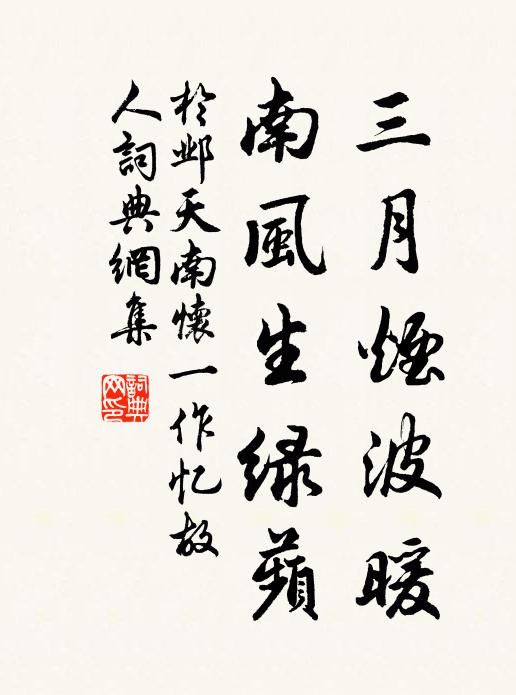 三月煙波暖
南風生綠蘋
於鄴天南懷一作忆故
人詞典網集
詞典
网印